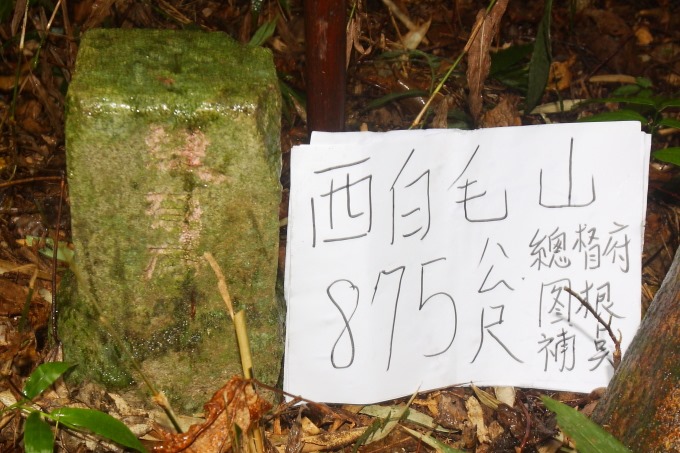 西白毛山
875公尺
總督府
图根
補奌